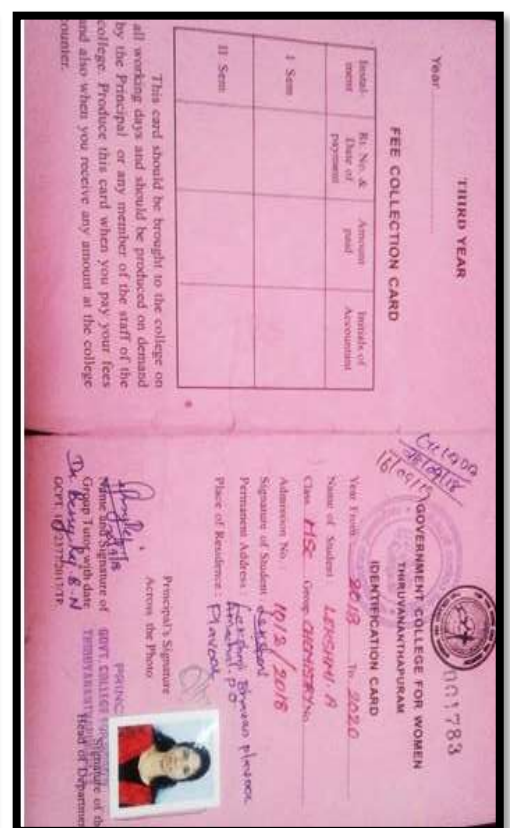 THIRD YEAR
Year
FEE COLLECTION CARD
Instal-
ment
Rt. No. &
Date of
payment
Amount
paid
Initials of
Accountant
I Sem
II Sem
This card should be brought to the college on
all working days and should be produced on demand
by the Principal or any member of the staff of the
college. Produce this card when you pay your fees
and also when you receive any amount at the college
counter.
001783
GOVERNMENT COLLEGE FOR WOMEN
THIRUVANANTHAPURAM
IDENTIFICATION CARD
Year From 2018 To 2020
Name of Student : LEKSHMI A
Class MSc Group CHEMISTRY No.
Admission No. 1012/2018
Signature of Student Lekshmi
Permanent Address : Lekshmi Bhavan
P O
Place of Residence :
Principal's Signature
Across the Photo
Name and Signature of
Group Tutor with date
GCPT.
PRINC
GOVT. COLLEGE
Signature of th
Head of Departmen